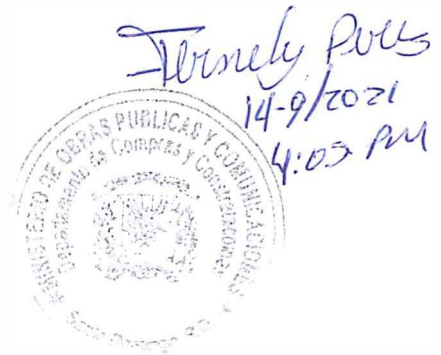 14-9/2021
4:05 PM
MINISTERIO DE OBRAS PUBLICAS Y COMUNICACIONES
Departamento de Compras y Contrataciones
Santo Domingo